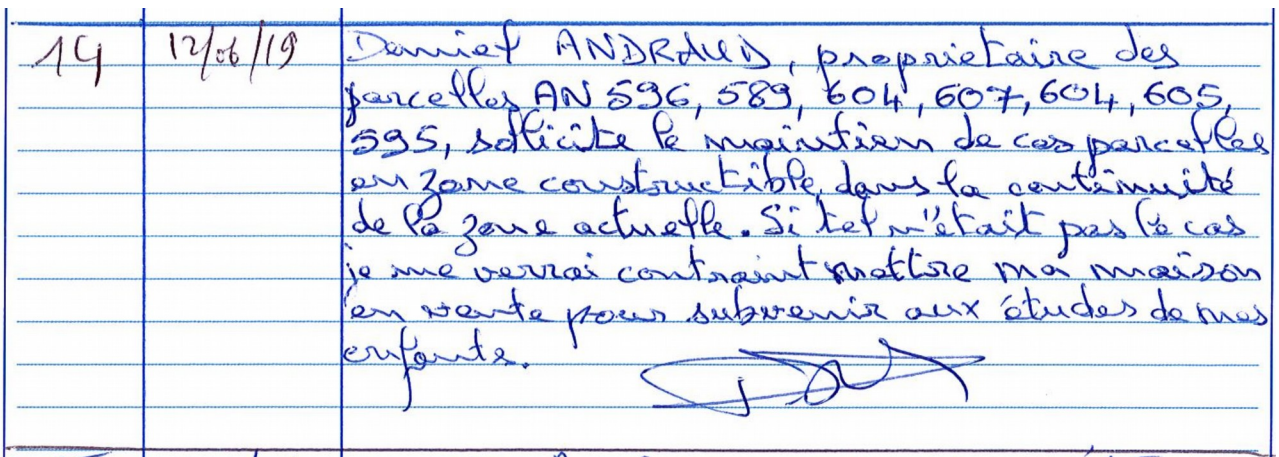 14 12/06/19 Daniel ANDRAUD, propriétaire des
parcelles AN 596, 589, 604, 607, 604, 605,
595, sollicite le maintien de ces parcelles
en zone constructible, dans la continuité
de la zone actuelle. Si tel n'était pas le cas
je me verrai contraint mettre ma maison
en vente pour subvenir aux études de mes
enfants.